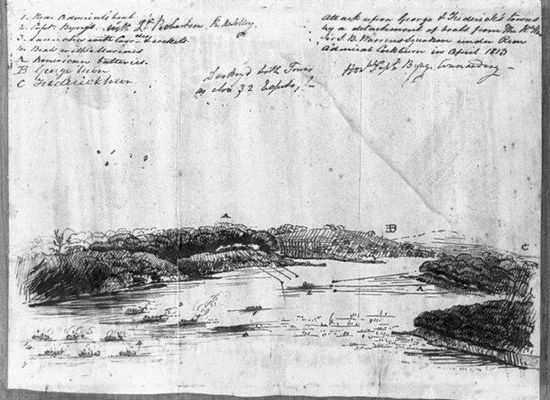 1. Rear Admirals boat
2. Capt. Byng's with Lt. Robertson R. Artilley
3. Launches with Congreve Rockets
Boats with Marines
A American batteries.
B George Town
C Fredericktown
Destroyd both Towns
as also 32 Vessels,
Attack upon George & Frederick's towns
by a detachment of boats from the Rt. Hon.
Sir J. B. Warrens Squadron under Rear
Admiral Cockburn in April 1813
Honble Capt. Byng Commanding
A
B
C